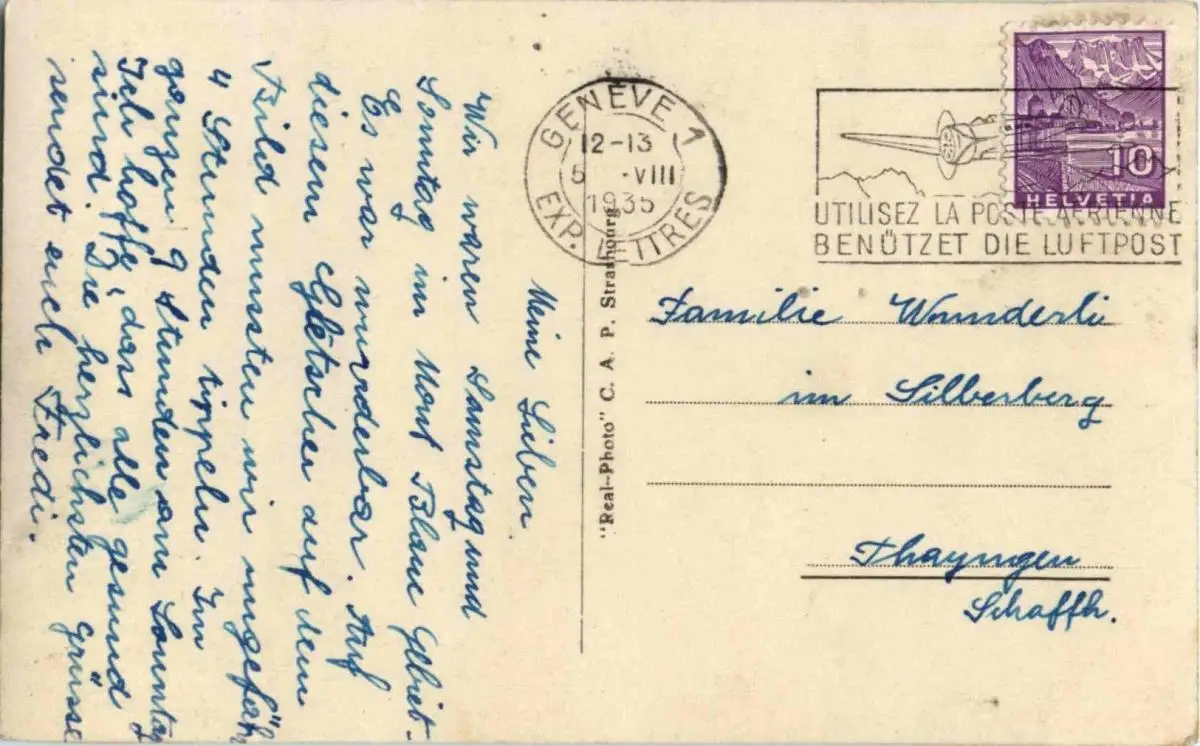 Meine Lieben.
Wir waren Samstag und
Sonntag im Mont Blanc Gebiet.
Es war wunderbar. Auf
diesem Gletscher auf dem
Bild mussten wir ungefähr
4 Stunden tippeln. Im
ganzen 9 Stunden am Sonntag
Ich hoffe, dass alle gesund
sind. Die herzlichsten Grüsse
sendet euch Fredi.
"Real-Photo" C. A. P. Strasbourg
GENÈVE 1
12-13
5 -VIII
1935
EXP. LETTRES
UTILISEZ LA POSTE AERIENNE
BENÜTZET DIE LUFTPOST
10
HELVETIA
Familie Wunderli
im Silberberg
Thayngen
Schaffh.